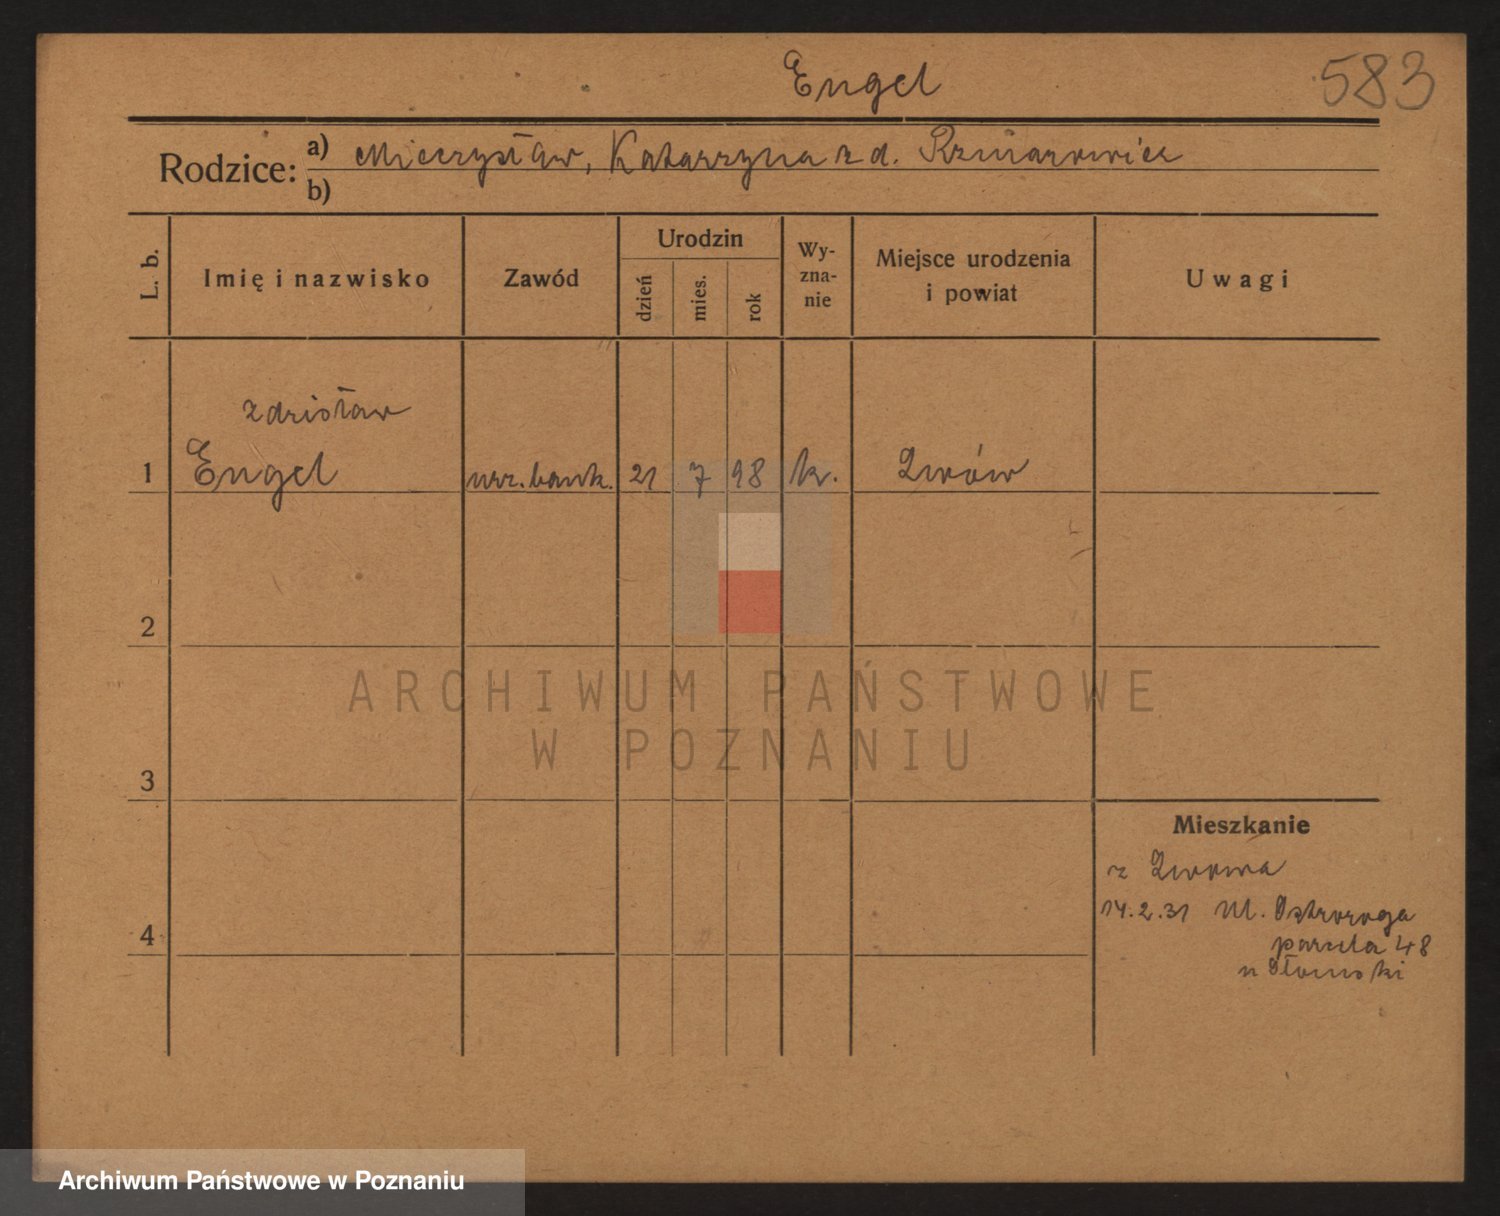 Engel
583
Rodzice:
a) Mieczysław, Katarzyna z d.
b)
L. b.
Imię i nazwisko
Zawód
Urodzin
dzień
mies.
rok
Wy-
zna-
nie
Miejsce urodzenia
i powiat
Uwagi
Zdzisław
1 Engel urz. bank. 21 7 98 k. Lwów
2
3
4
Mieszkanie
z Lwowa
14.2.31 Ul. Ostroroga
parcela 48
u
ARCHIWUM PAŃSTWOWE
W POZNANIU
Archiwum Państwowe w Poznaniu